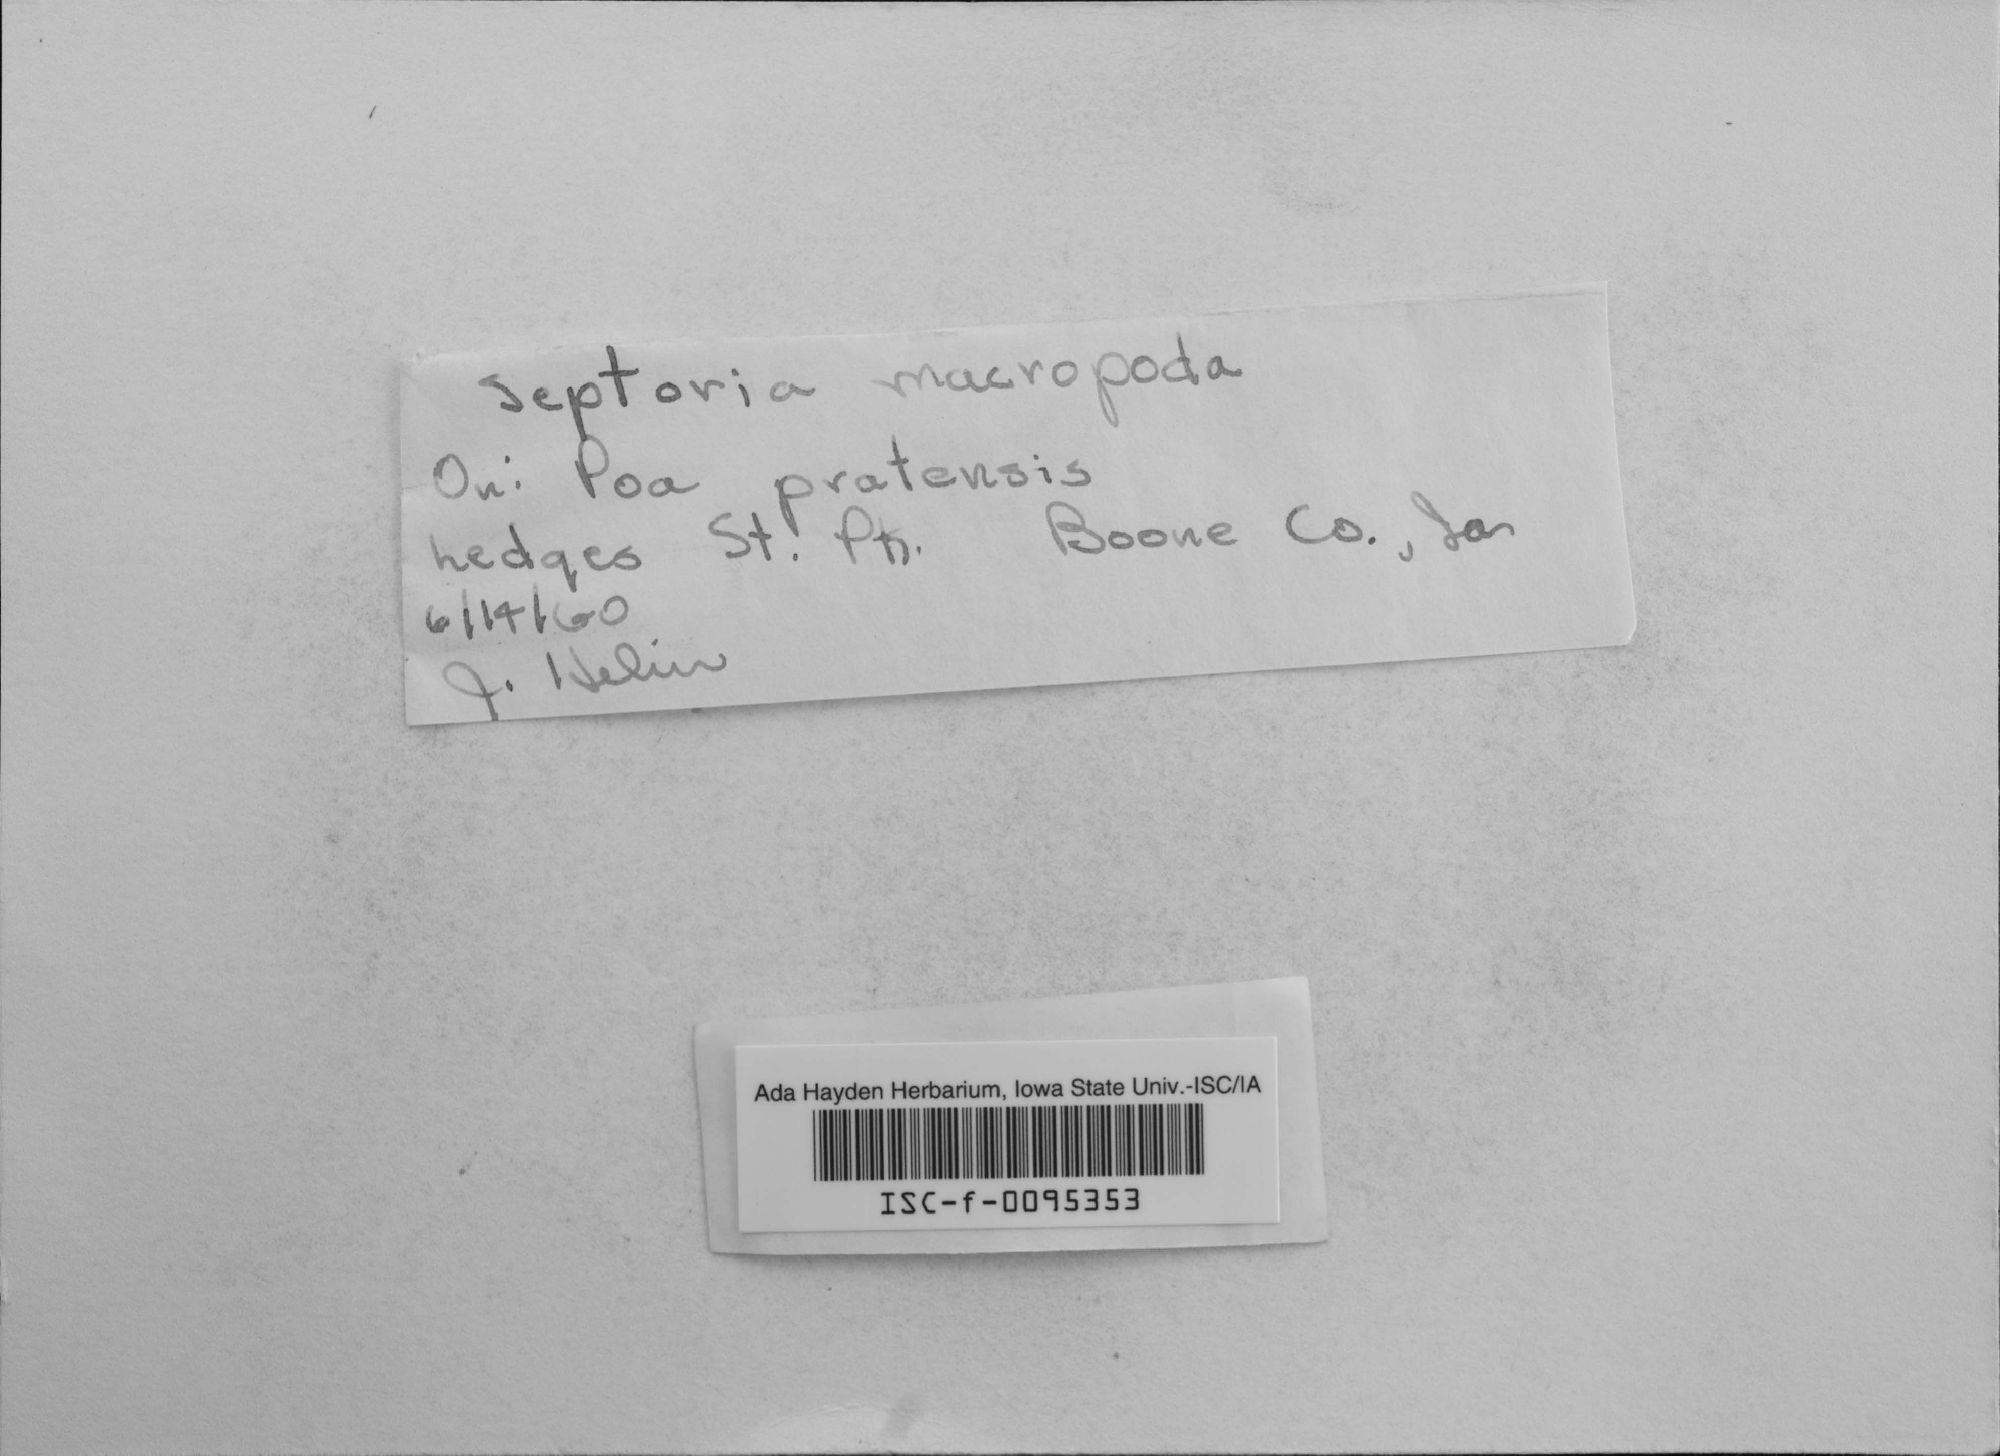 Septoria macropoda
On: Poa pratensis
hedges St. Pk. Boone Co., Ia
6/14/60
J. Helin
Ada Hayden Herbarium, Iowa State Univ.-ISC/IA
ISC-f-0095353